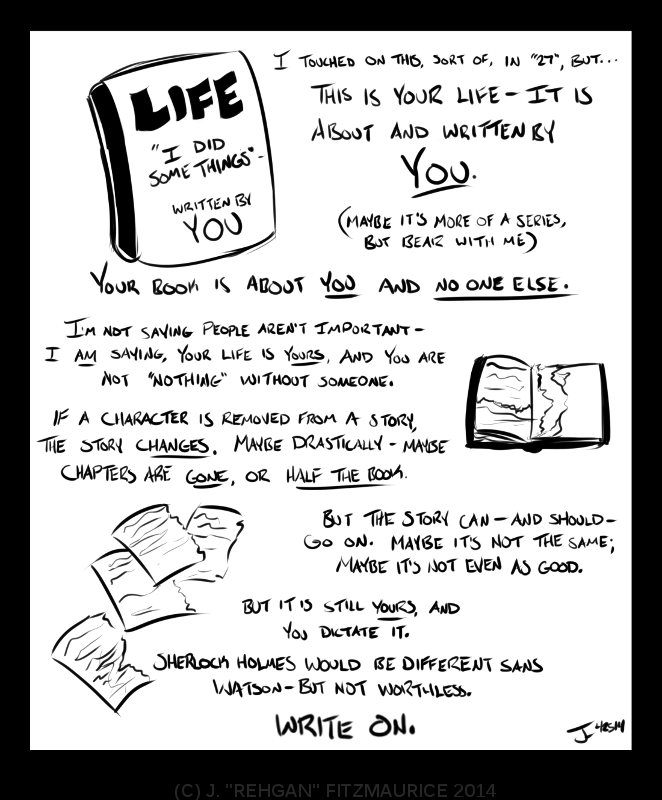 LIFE
"I DID
SOME THINGS"-
WRITTEN BY
YOU
I TOUCHED ON THIS, SORT OF, IN "27", BUT...
THIS IS YOUR LIFE - IT IS
ABOUT AND WRITTEN BY
YOU.
(MAYBE IT'S MORE OF A SERIES,
BUT BEAR WITH ME)
YOUR BOOK IS ABOUT YOU AND NO ONE ELSE.
I'M NOT SAYING PEOPLE AREN'T IMPORTANT -
I AM SAYING, YOUR LIFE IS YOURS, AND YOU ARE
NOT "NOTHING" WITHOUT SOMEONE.
IF A CHARACTER IS REMOVED FROM A STORY,
THE STORY CHANGES. MAYBE DRASTICALLY - MAYBE
CHAPTERS ARE GONE, OR HALF THE BOOK.
BUT THE STORY CAN - AND SHOULD -
GO ON. MAYBE IT'S NOT THE SAME;
MAYBE IT'S NOT EVEN AS GOOD.
BUT IT IS STILL YOURS, AND
YOU DICTATE IT.
SHERLOCK HOLMES WOULD BE DIFFERENT SANS
WATSON - BUT NOT WORTHLESS.
WRITE ON.
(C) J. "REHGAN" FITZMAURICE 2014